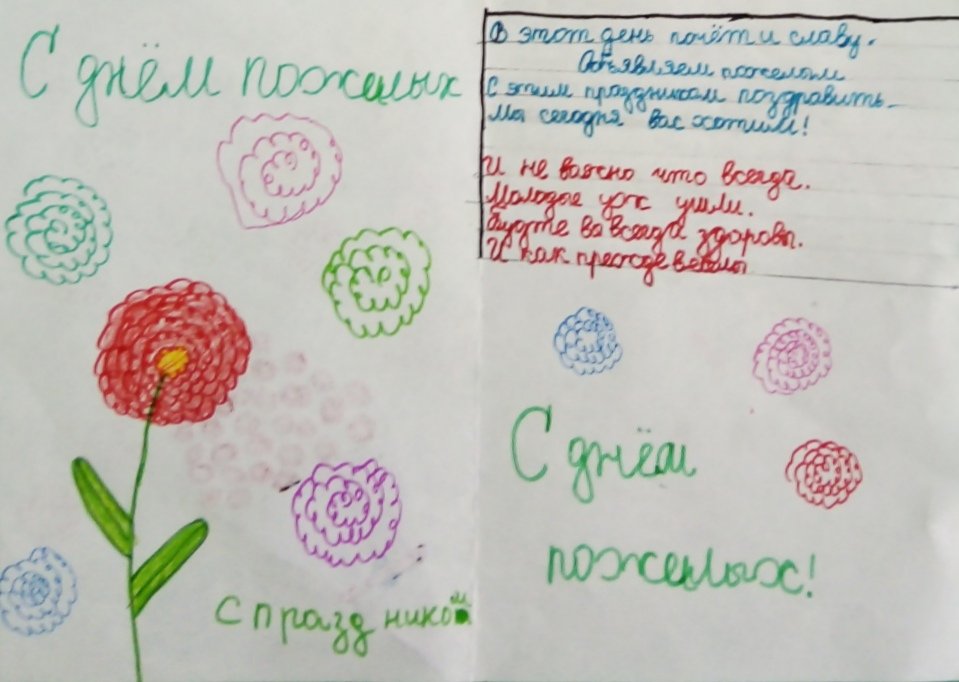 С днём пожелых
С праздником
В этот день почёт и славу.
Объявляем пожелым
С этим праздником поздравить
Мы сегодня вас хотим!
И не важно что всегда.
Молодые уж ушли.
Будте вы всегда здоровы.
И как прежде веселы
С днём
пожелых!